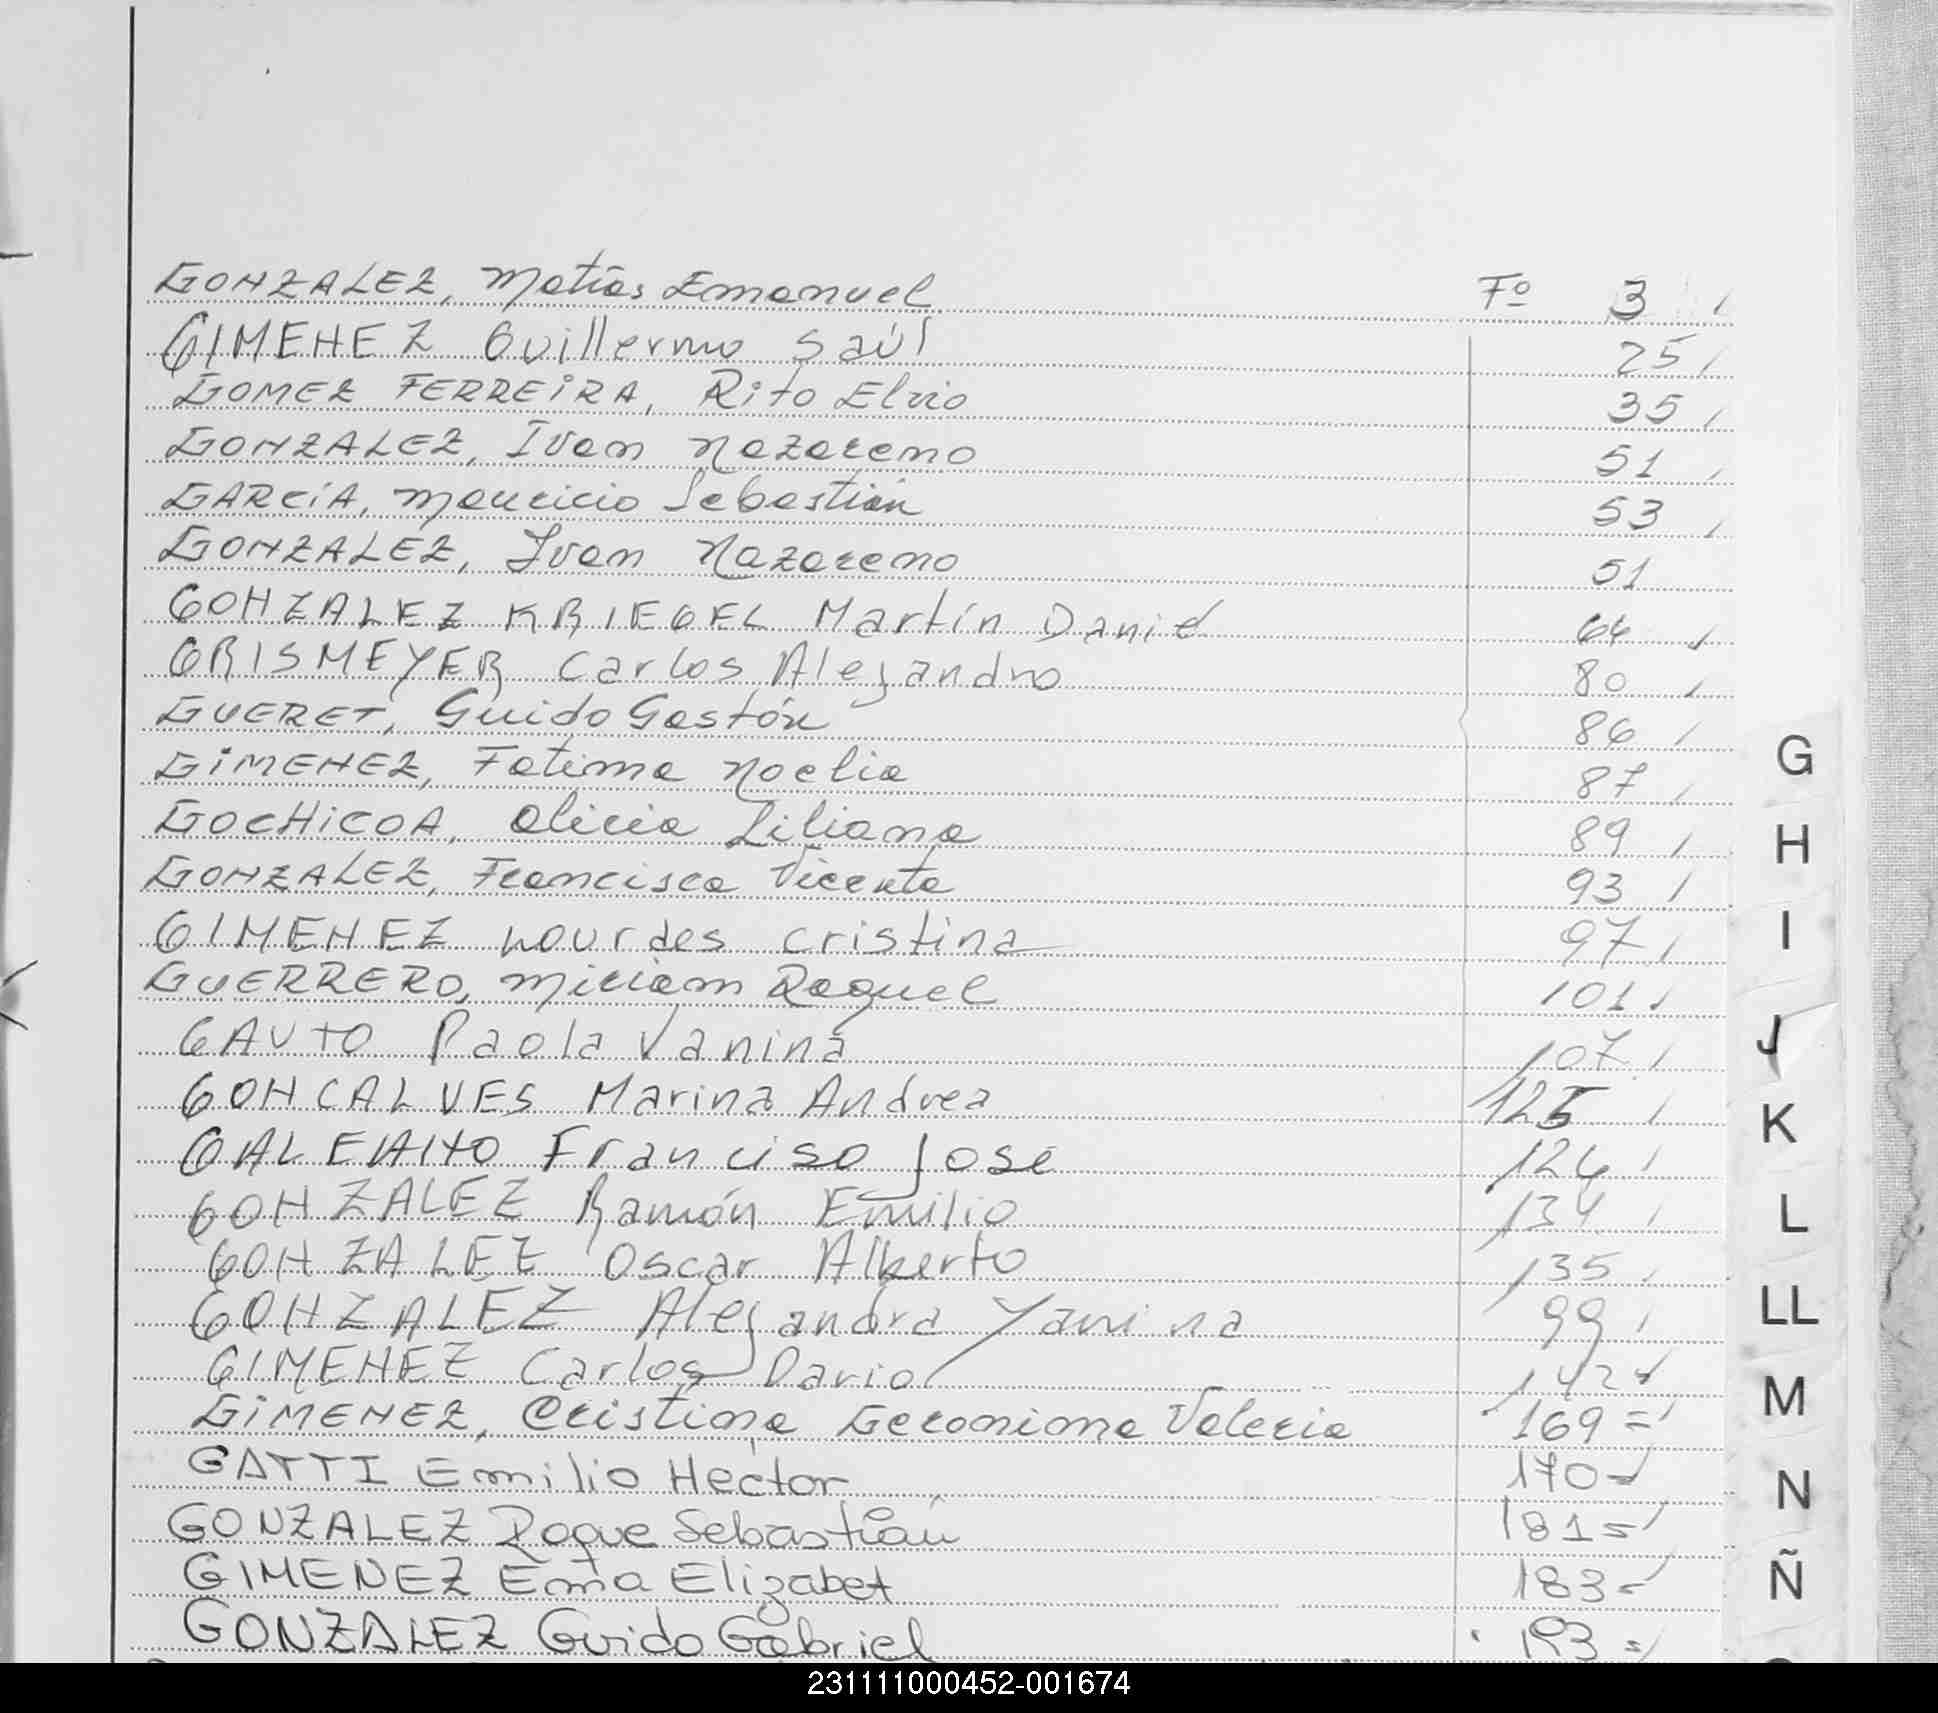 GONZALEZ, Matías Emanuel Fº 3
GIMENEZ Guillermo Saúl 25
GOMEZ FERREIRA, Rito Elvio 35
GONZALEZ, Ivan Nazareno 51
GARCÍA, Mauricio Sebastián 53
GONZALEZ, Ivan Nazareno 51
GONZALEZ KRIEGEL Martín Daniel 64
GRISMEYER Carlos Alejandro 80
GUERET, Guido Gastón 86
GIMENEZ, Fatima Noelia 87
GOCHICOA, Alicia Liliana 89
GONZALEZ, Francisca Vicenta 93
GIMENEZ Lourdes Cristina 97
GUERRERO, Miriam Raquel 101
GAUTO Paola Vanina 107
GONCALVES Marina Andrea 125
GALEANO Franciso José 126
GONZALEZ Ramón Emilio 134
GONZALEZ Oscar Alberto 135
GONZALEZ Alejandra Yanina 99
GIMENEZ Carlos Dario 142
GIMENEZ, Cristina Geronima Valeria 169=
GATTI Emilio Hector 170=
GONZALEZ Roque Sebastián 181=
GIMENEZ Ema Elizabet 183=
GONZALEZ Guido Gabriel 193=
G
H
I
J
K
L
LL
M
N
Ñ
231111000452-001674